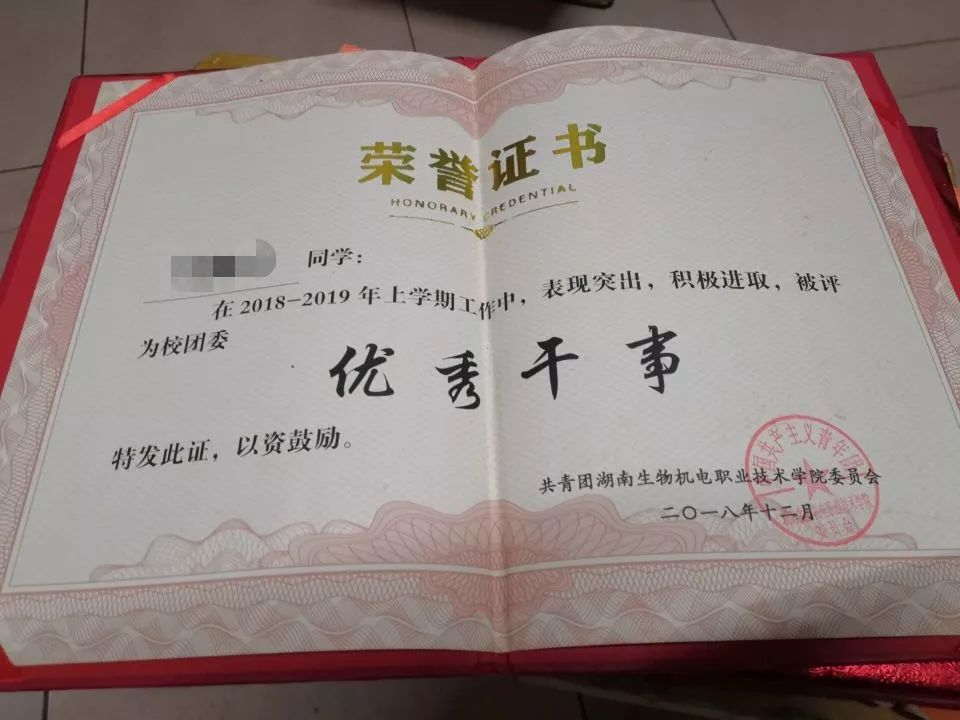 荣誉证书
HONORARY CREDENTIAL
同学：
在2018-2019年上学期工作中，表现突出，积极进取，被评
为校团委
优秀干事
特发此证，以资鼓励。
共青团湖南生物机电职业技术学院委员会
二〇一八年十二月